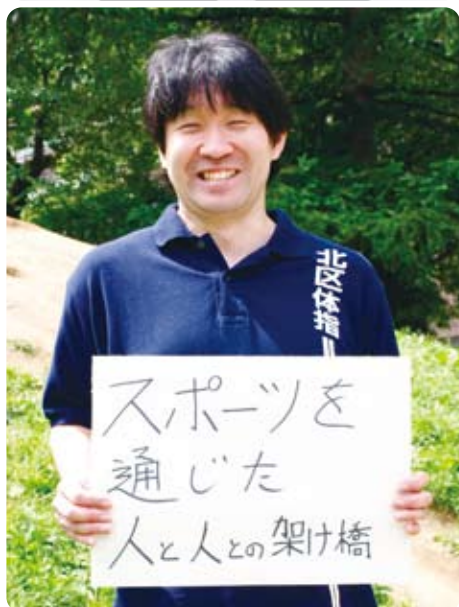 北区体指
スポーツを
通じた
人と人との架け橋